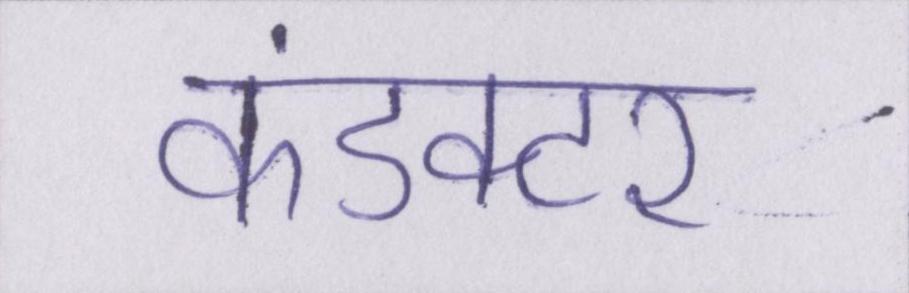 कंडक्टर